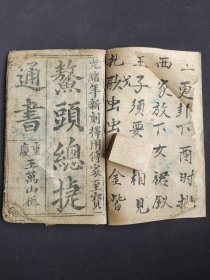 二更卦下酉時
西家放下亥裙釵
王子須要相見
出出金皆
光緒年新刻擇用傳家至寶
鰲頭總捷
通書
重慶
王萬山梓